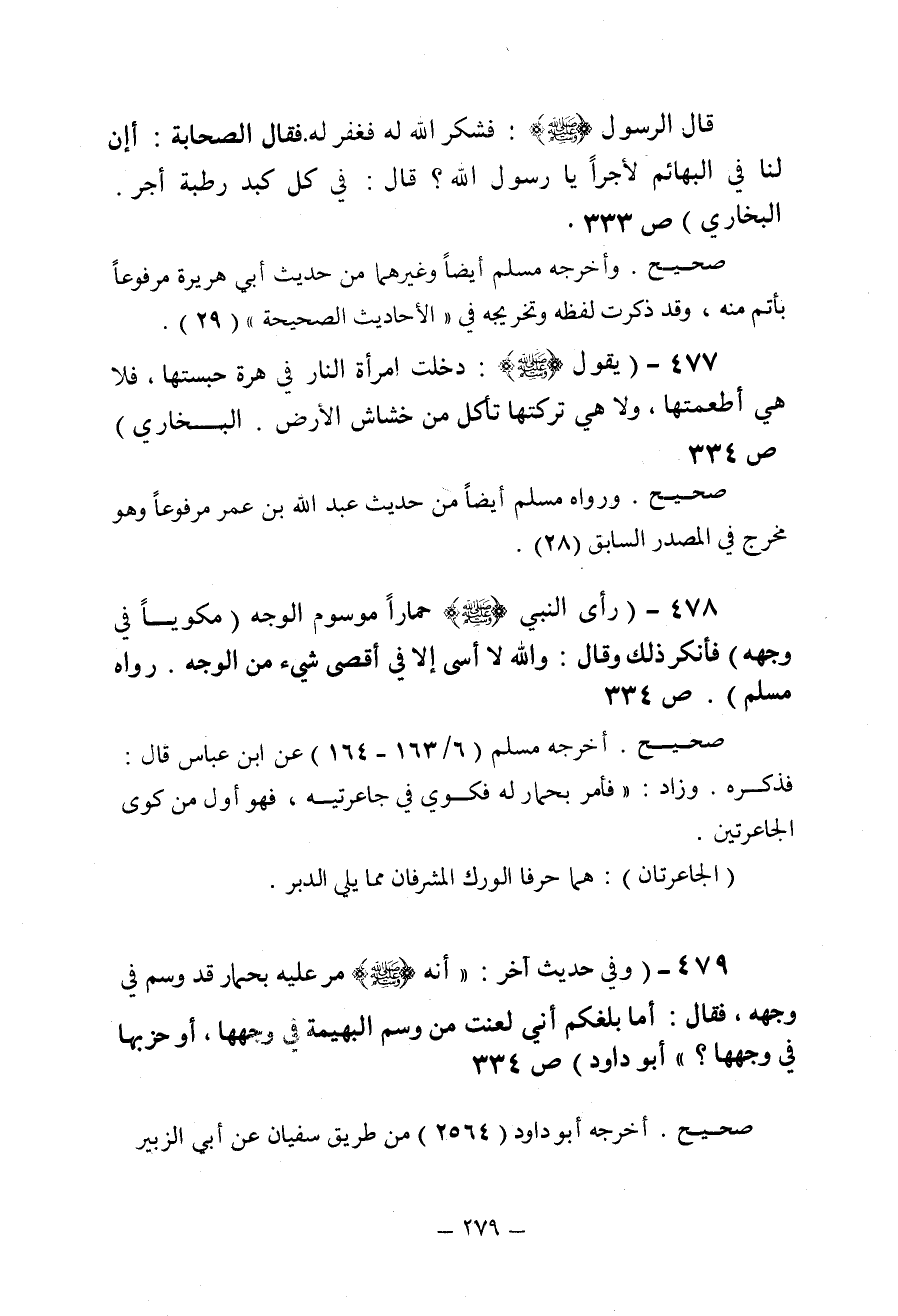 قال الرسول ﴿ﷺ﴾ : فشكر الله له فغفر له.فقال الصحابة : أإن
لنا في البهائم لأجراً يا رسول الله ؟ قال : في كل كبد رطبة أجر .
البخاري ) ص ٣٣٣ .
صحيح . وأخرجه مسلم أيضاً وغيرهما من حديث أبي هريرة مرفوعاً
بأتم منه ، وقد ذكرت لفظه وتخريجه في « الأحاديث الصحيحة » ( ٢٩ ) .
٤٧٧ - ( يقول ﴿ﷺ﴾ : دخلت امرأة النار في هرة حبستها ، فلا
هي أطعمتها ، ولا هي تركتها تأكل من خشاش الأرض . البخاري )
ص ٣٣٤
صحيح . ورواه مسلم أيضاً من حديث عبد الله بن عمر مرفوعاً وهو
مخرج في المصدر السابق (٢٨) .
٤٧٨ - ( رأى النبي ﴿ﷺ﴾ حماراً موسوم الوجه ( مكوياً في
وجهه ) فأنكر ذلك وقال : والله لا أسى إلا في أقصى شيء من الوجه . رواه
مسلم ) . ص ٣٣٤
صحيح . أخرجه مسلم ( ٦/ ١٦٣ - ١٦٤ ) عن ابن عباس قال :
فذكره . وزاد : « فأمر بحمار له فكوي في جاعرتيه ، فهو أول من كوى
الجاعرتين .
( الجاعرتان ) : هما حرفا الورك المشرفان مما يلي الدبر .
٤٧٩ - ( وفي حديث آخر : « أنه ﴿ﷺ﴾ مر عليه بحمار قد وسم في
وجهه ، فقال : أما بلغكم أني لعنت من وسم البهيمة في وجهها ، أو حزبها
في وجهها ؟ » أبو داود ) ص ٣٣٤
صحيح . أخرجه أبو داود ( ٢٥٦٤ ) من طريق سفيان عن أبي الزبير
— ٢٧٩ —